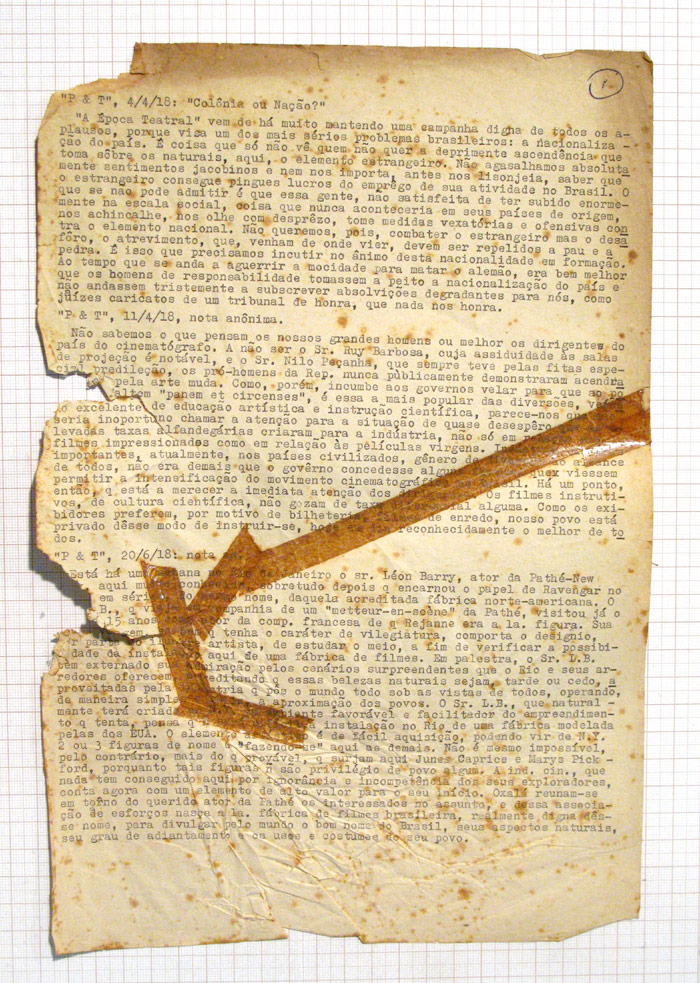 1
"P & T", 4/4/18: "Colônia ou Nação?"
"A Época Teatral" vem de há muito mantendo uma campanha digna de todos os a-
plausos, porque visa um dos mais sérios problemas brasileiros: a nacionaliza -
ção do país. É coisa que só não vê quem não quer a deprimente ascendência que
toma sôbre os naturais, aqui, o elemento estrangeiro. Não agasalhamos absoluta
mente sentimentos jacobinos e nem nos importa, antes nos lisonjeia, saber que
o estrangeiro consegue pingues lucros do emprêgo de sua atividade no Brasil. O
que se não pode admitir é que essa gente, não satisfeita de ter subido enorme-
mente na escala social, coisa que nunca aconteceria em seus países de origem,
nos achincalhe, nos olhe com desprêso, tome medidas vexatórias e ofensivas con
tra o elemento nacional. Não queremos, pois, combater o estrangeiro mas o desa
fôro, o atrevimento, que, venham de onde vier, devem ser repelidos a pau e a
pedra. É isso que precisamos incutir no ânimo desta nacionalidade em formação.
Ao tempo que se anda a aguerrir a mocidade para matar o alemão, era bem melhor
que os homens de responsabilidade tomassem a peito a nacionalização do país e
não andassem tristemente a subscrever absolvições degradantes para nós, como
juízes caricatos de um tribunal de honra, que nada nos honra.
"P & T", 11/4/18, nota anônima.
Não sabemos o que pensam os nossos grandes homens ou melhor os dirigentes do
país do cinematógrafo. A não ser o Sr. Ruy Barbosa, cuja assiduidade às salas
de projeção é notável, e o Sr. Nilo Peçanha, que sempre teve pelas fitas espe-
cial predileção, os pró-homens da Rep. nunca públicamente demonstraram acendra
pela arte muda. Como, porém, incumbe aos governos velar para que ao po
faltem "panem et circenses", é essa a mais popular das diversões,
excelente de educação artística e instrução científica, parece-nos
seria inoportuno chamar a atenção para a situação de quase desespêro
levadas taxas alfandegárias criaram para a indústria, não só em
filmes impressionados como em relação às películas virgens.
importantes, atualmente, nos países civilizados, gênero
de todos, não era demais que o govêrno concedesse viessem
permitir a intensificação do movimento Brasil. Há um ponto,
então, q está a merecer a imediata atenção dos Os filmes instruti-
vos, de cultura científica, não gozam de taxa alguma. Como os exi-
bidores preferem, por motivo de bilheteria, de enredo, nosso povo está
privado dêsse modo de instruir-se, reconhecidamente o melhor de to
dos.
"P & T", 20/6/18: nota
Está há uma no Rio o sr. Léon Barry, ator da Pathé-New
aqui muito sobretudo depois q encarnou o papel de Ravengar no
em série do nome, daquela acreditada fábrica norte-americana. O
B., q companhia de um "metteur-en-scène" da Pathé, visitou já o
15 anos, ator da comp. francesa de q Rejanne era a 1a. figura. Sua
q tenha o caráter de vilegiatura, comporta o desígnio,
artista, de estudar o meio, a fim de verificar a possibi-
lidade da aqui de uma fábrica de filmes. Em palestra, o Sr. L.B.
tem externado sua pelos cenários surpreendentes que o Rio e seus ar-
redores oferecem, q essas belezas naturais sejam, tarde ou cedo, a
proveitadas pela pôr o mundo todo sob as vistas de todos, operando,
de maneira simples aproximação dos povos. O Sr. L.B., que natural -
mente terá favorável e facilitador do empreendimen-
to q tenta, pensa q instalação no Rio de uma fábrica modelada
pelas dos EUA. O elemento de fácil aquisição, podendo vir de N.Y.
2 ou 3 figuras de nome "fazendo-se" aqui as demais. Não é mesmo impossível,
pelo contrário, mais do q provável, surjam aqui Junes Caprice e Marys Pick -
ford, porquanto tais figuras ñ são privilégio de povo algum. A ind. cin., que
nada tem conseguido aqui por ignorância e incompetência dos seus exploradores,
conta agora com um elemento de alto valor para o seu início. Oxalá reunam-se
em tôrno do querido ator da Pathé os interessados no assunto, q dessa associa-
ção de esforços nasça a 1a. fábrica de filmes brasileira, realmente digna dês-
se nome, para divulgar pelo mundo o bom nome do Brasil, seus aspectos naturais,
seu grau de adiantamento e os usos e costumes de seu povo.